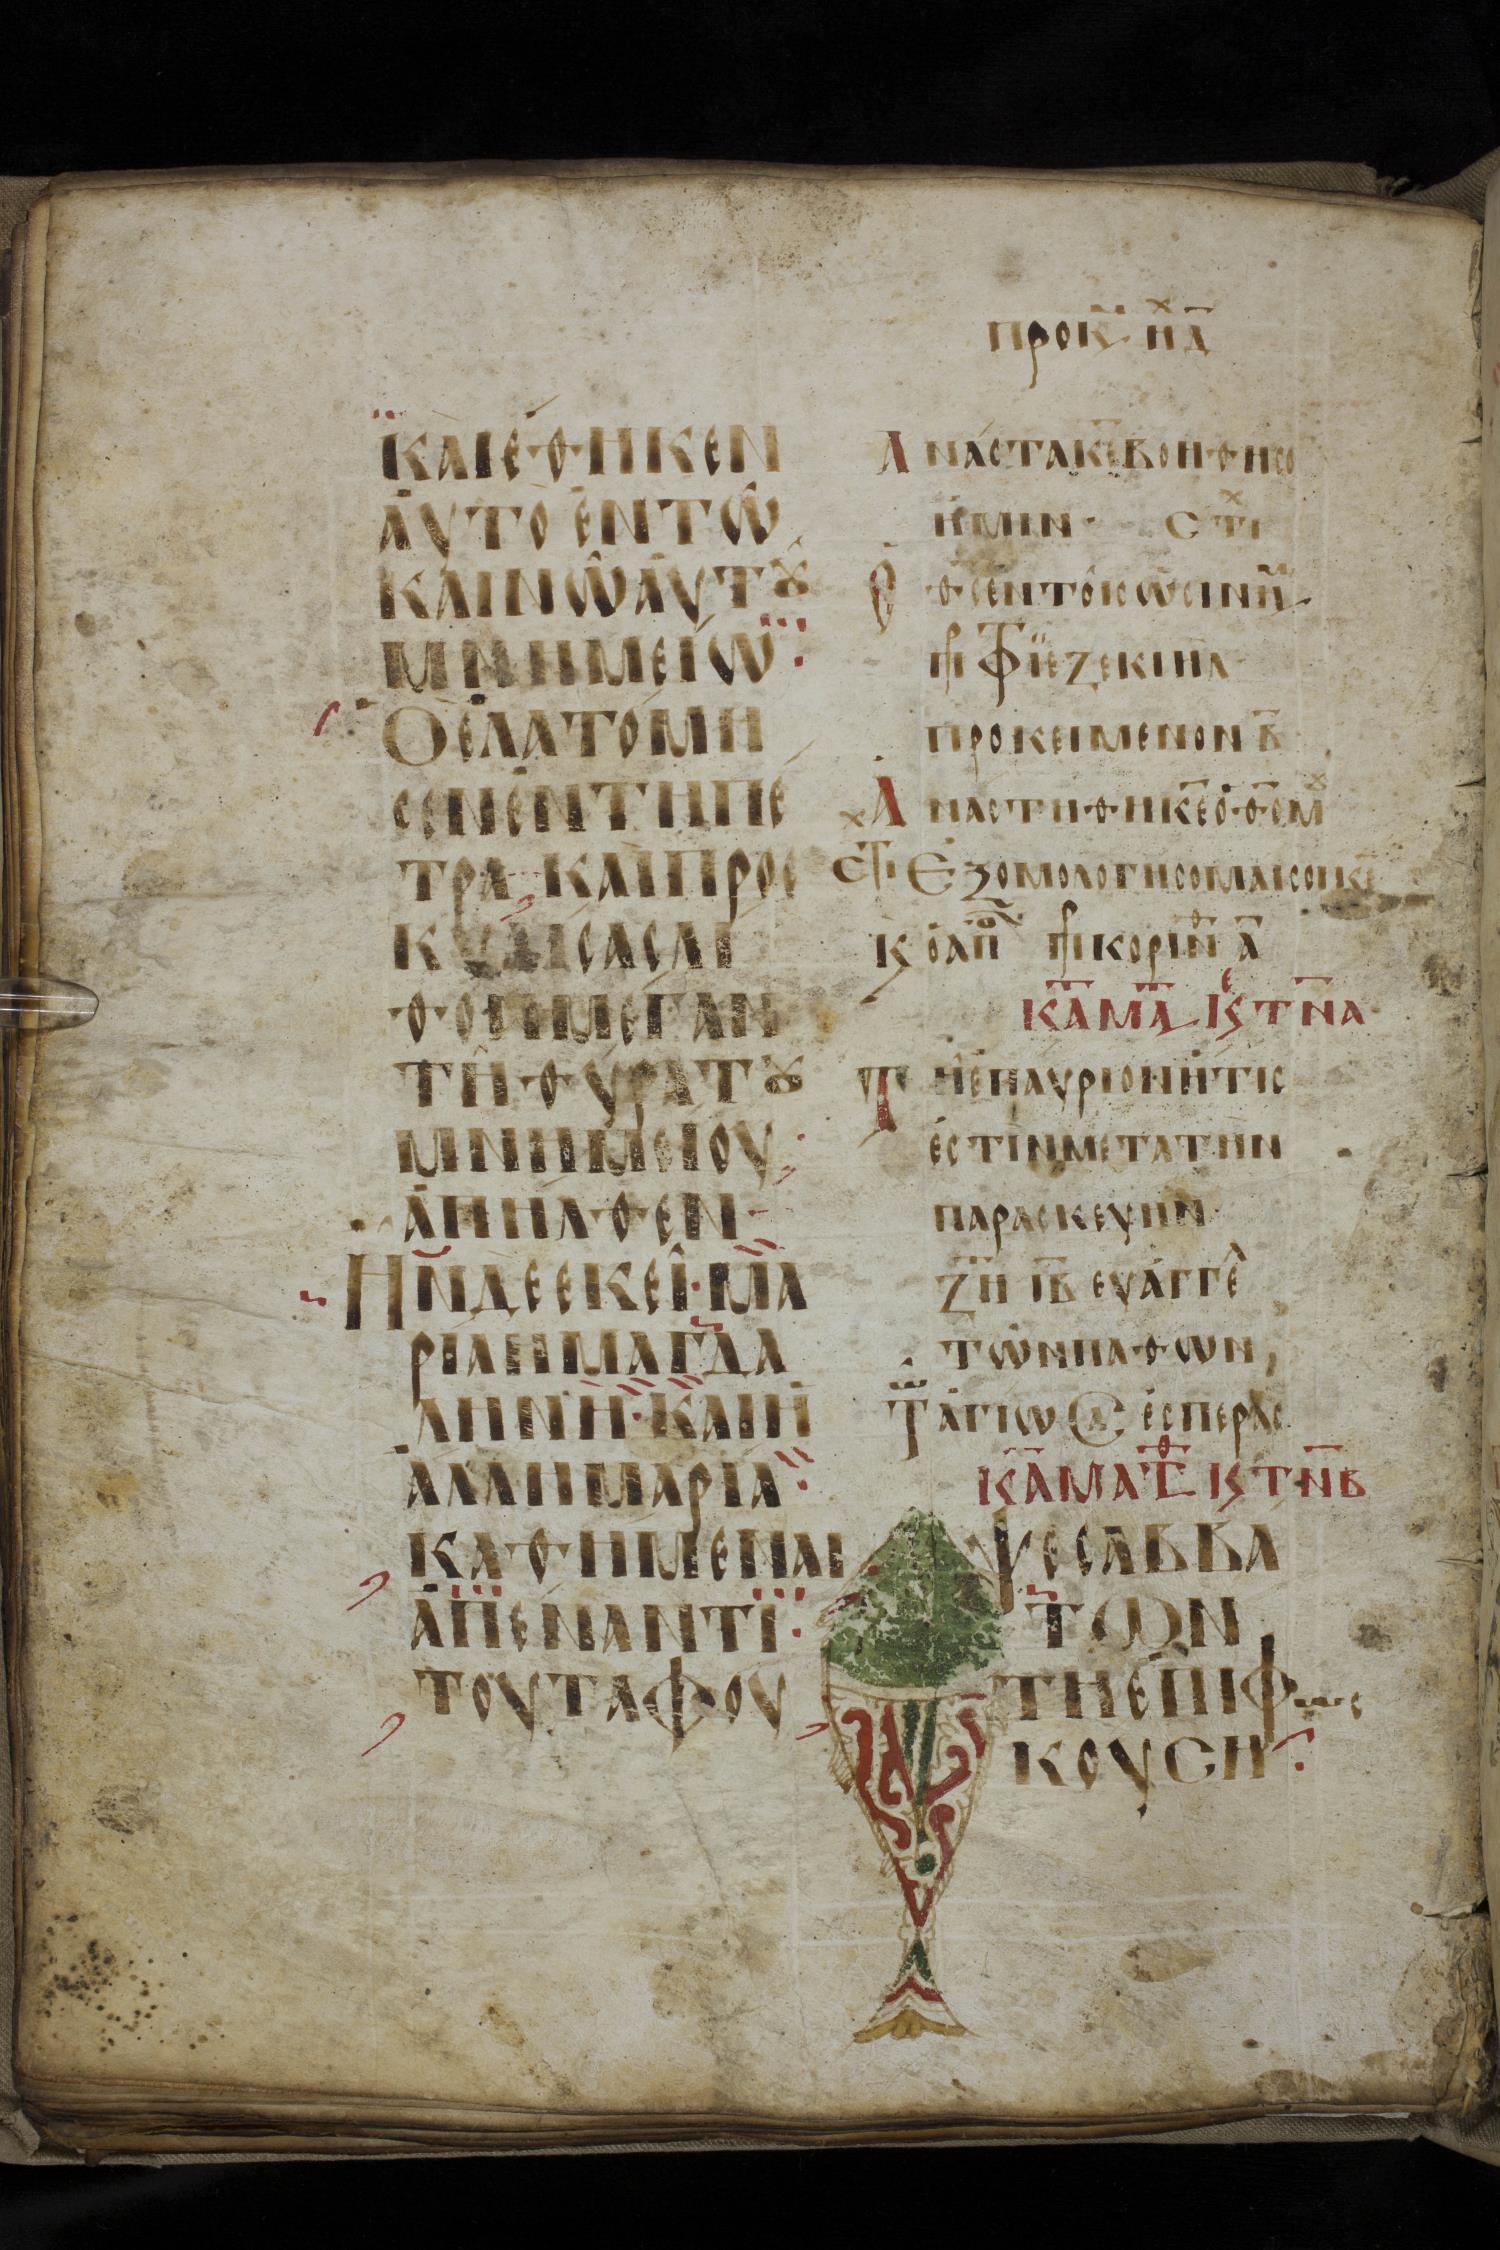 ΚΑΙΕΘΗΚΕΝ
ΑΥΤΟΕΝΤΩ
ΚΑΙΝΩΑΥΤȢ
ΜΝΗΜΕΙΩ:
ΟΕΛΑΤΟΜΗ
ϹΕΝΕΝΤΗΠΕ
ΤΡΑ ΚΑΙΠΡΟϹ
ΚΥΛΙϹΑϹΛΙ
ΘΟΝΜΕΓΑΝ
ΤΗΘΥΡΑΤȢ
ΜΝΗΜΕΙΟΥ·
ΑΠΗΛΘΕΝ
ΗΝΔΕΕΚΕΙ·ΜΑ
ΡΙΑΗΜΑΓΔΑ
ΛΗΝΗ·ΚΑΙΗ
ΑΛΛΗΜΑΡΙΑ:
ΚΑΘΗΜΕΝΑΙ
ΑΠΕΝΑΝΤΙ:
ΤΟΥΤΑΦΟΥ
ΠΡΟΚ ΗΧ Δ
ΑΝΑϹΤΑΚΕΒΟΗΘΗϹΟ
ΗΜΙΝ· ϹΤΙΧ
Ο ΘϹΕΝΤΟΙϹΩϹΙΝΗΜ
ΠΡΟΦΙΕΖΕΚΙΗΛ
ΠΡΟΚΕΙΜΕΝΟΝ Β
ΑΝΑϹΤΗΘΗΚΕΟΘϹΜ
ϹΤΙΧ ΕΞΟΜΟΛΟΓΗϹΟΜΑΙϹΟΙΚΕ
Κ ΟΑΠΟ ΠΡΚΟΡΙΝΘ Α
ΚΑΜΑΤΘ ΚΕΤΝΑ
ΤΗΕΠΑΥΡΙΟΝΗΤΙϹ
ΕϹΤΙΝΜΕΤΑΤΗΝ
ΠΑΡΑϹΚΕΥΗΝ·
ΖΗ ΙΒ ΕΥΑΓΓΕΛ
ΤΩΝΠΑΘΩΝ,
ΤΩ ΑΓΙΩ ϹΑ ΕϹΠΕΡΑϹ
ΚΑΜΑΤΘ ΚΕΤΝΒ
ΟΨΕϹΑΒΒΑ
ΤΩΝ
ΤΗΕΠΙΦΩϹ
ΚΟΥϹΗ: